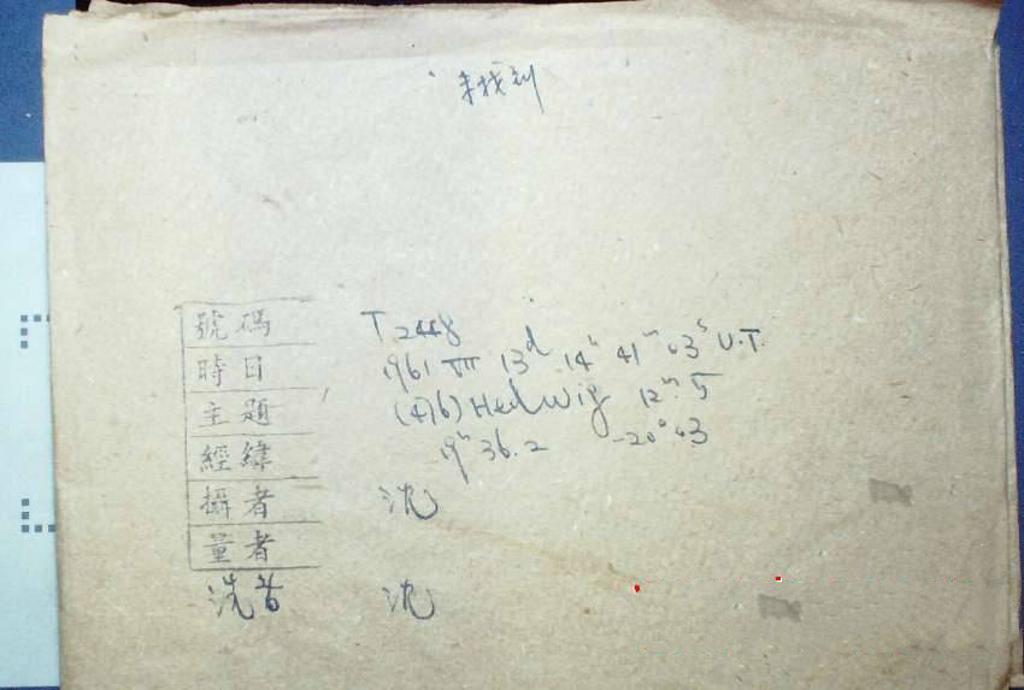 未找到
號碼 T 2448
時日 1961 VIII 13d 14h 41m 03s U.T.
主題 (476) Hedwig 12m.5
經緯 19h 36.2 -20°03
攝者 沈
量者
洗者 沈